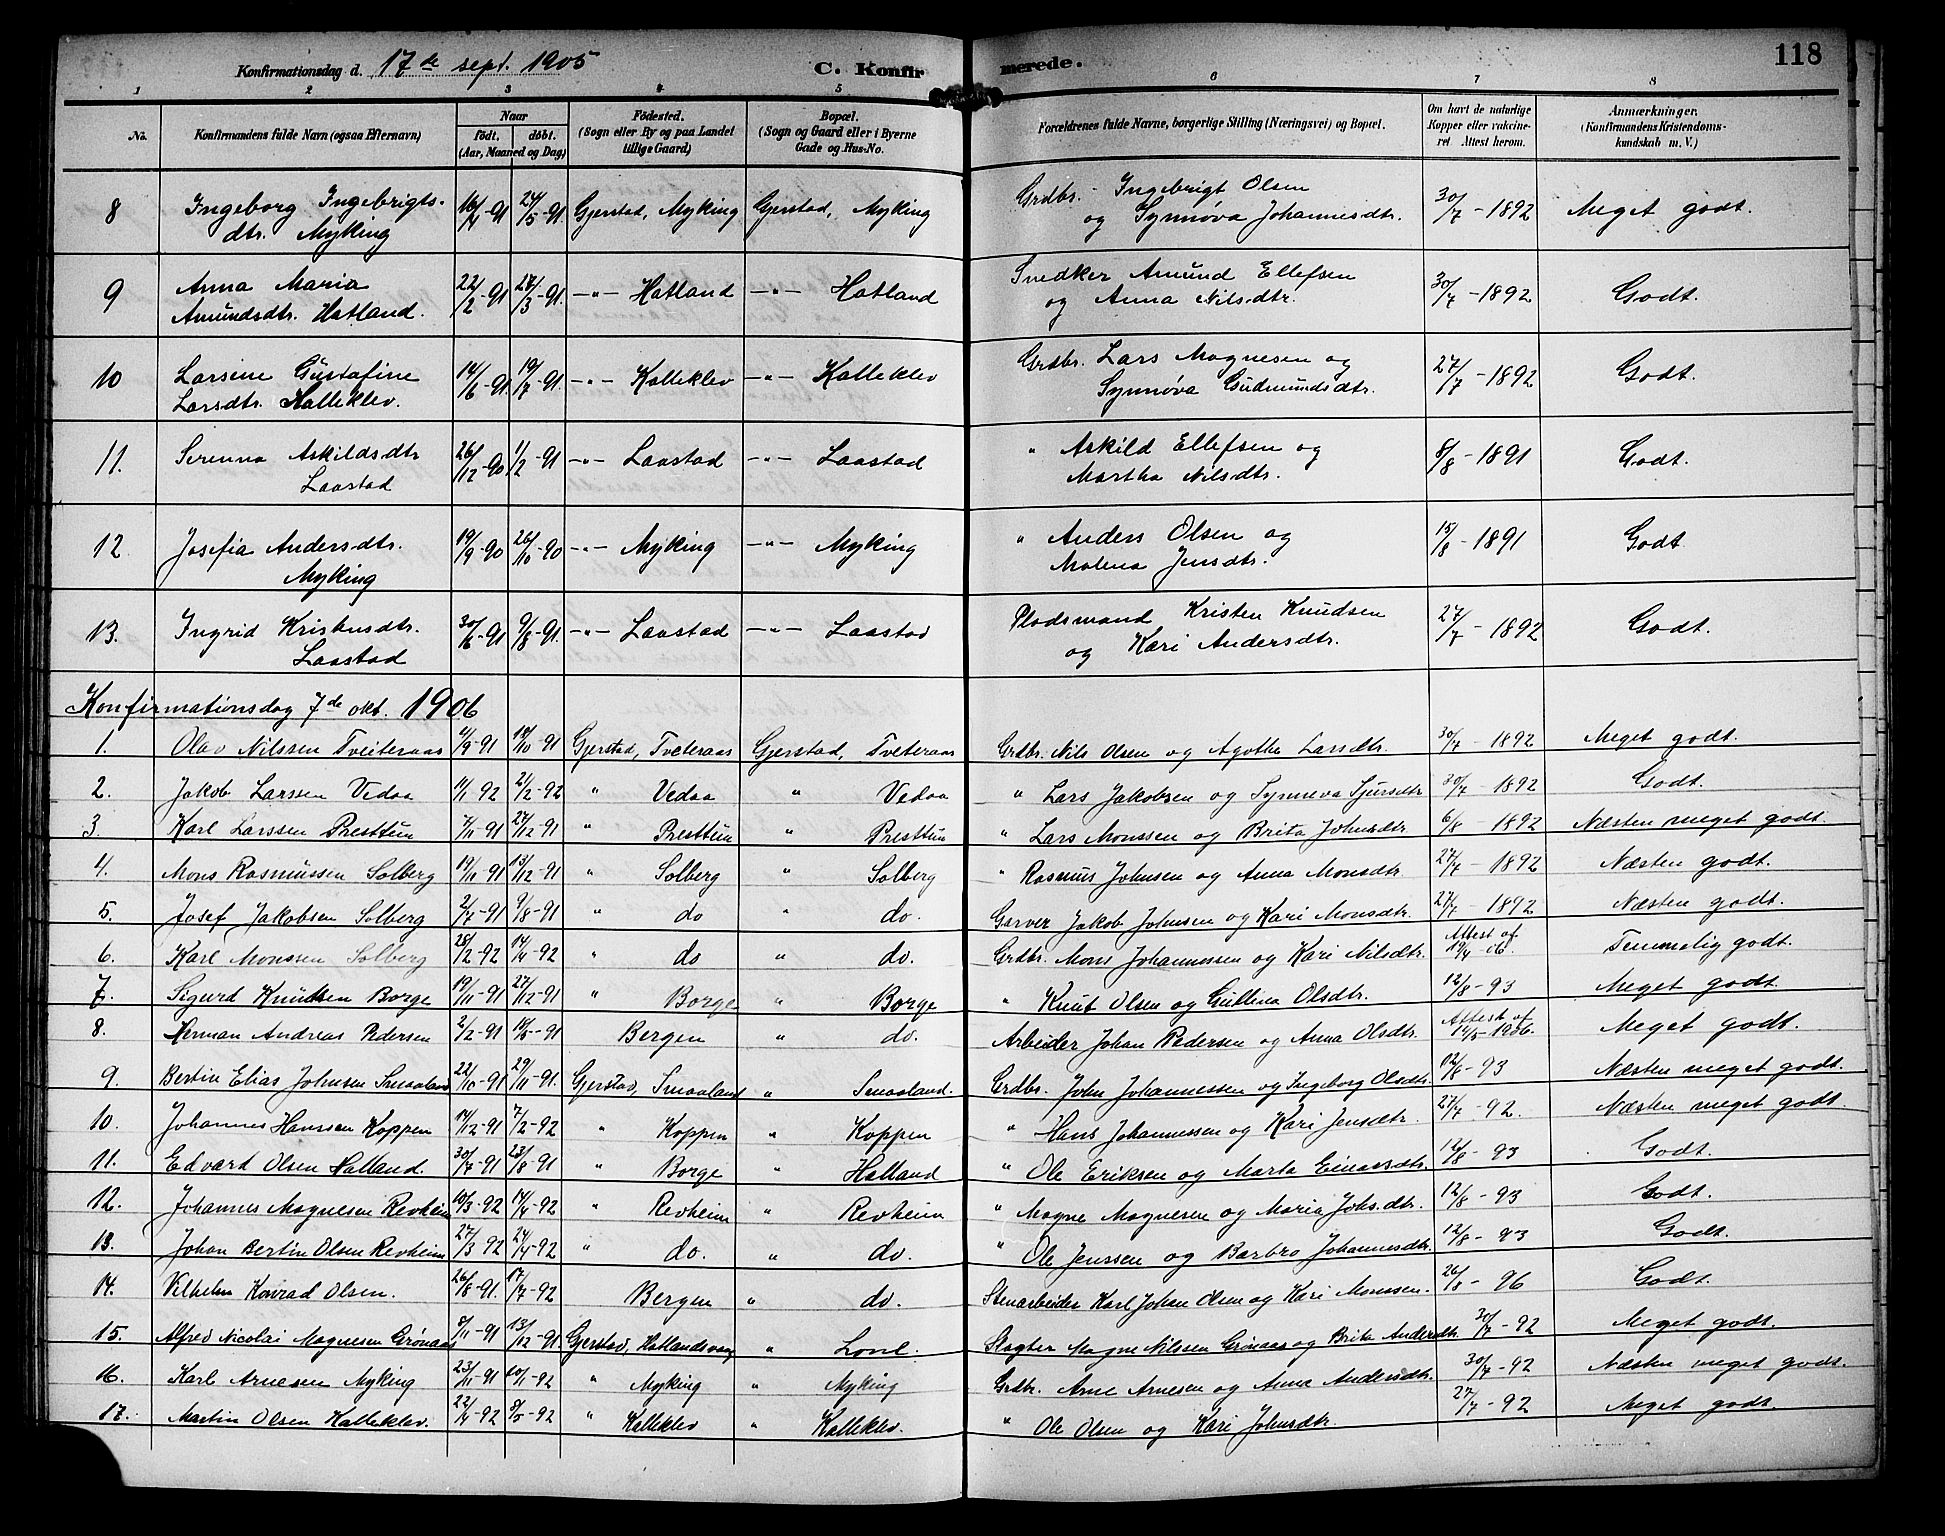 118
Konfirmationsdag d. 17de sept. 1905 C. Konfirmerede.
1 2 3 4 5 6 7 8
No. Konfirmandens fulde Navn (ogsaa Efternavn) Naar født, døbt. (Aar, Maaned og Dag) Fødested. (Sogn eller By og paa Landet tillige Gaard) Bopæl. (Sogn og Gaard eller i Byerne Gade og Hus-No. Forældrenes fulde Navne, borgerlige Stilling (Næringsvei) og Bopæl. Om havt de naturlige Kopper eller vakcineret. Attest herom. Anmærkninger. (Konfirmandens Kristendomskundskab m. V.)
8 Ingeborg Ingebrigts- 16/4-91 24/5-91 Gjerstad, Myking Gjerstad, Myking Grdbr. Ingebrigt Olsen 30/7-1892 Meget godt.
dtr. Myking og Synnøva Johannesdtr.
9 Anna Maria 22/2-91 28/3-91. -"- Hatland -"- Hatland Snedker Amund Ellefsen 30/7-1892 Godt.
Amundsdtr. Hatland. og Anna Nilsdtr.
10 Larsine Gustafine 14/6-91. 19/7-91. -"- Kalleklev -"- Kalleklev Grdbr. Lars Magnesen og 27/7-1892 Godt.
Larsdtr. Kalleklev. Synnøva Gudmundsdtr.
11. Serenna Askildsdtr 26/12-90 1/2-91 -"- Laastad -"- Laastad " Askild Ellefsen og 8/8-1891 Godt.
Laastad Martha Nilsdtr.
12 Josefia Andersdtr. 19/9-90 26/10-90 -"- Myking -"- Myking " Anders Olsen og 15/8-1891 Godt.
Myking Malena Jensdtr.
13. Ingrid Kristensdtr. 30/6-91 9/8-91. -"- Laastad -"- Laastad Pladsmand Kristen Knudsen 27/7-1892 Godt.
Laastad og Kari Andersdtr.
Konfirmationsdag 7de okt. 1906
1. Olav Nilssen Tveiteraas /9-91 18/10-91 Gjerstad, Tveteraas Gjerstad, Tveteraas Grdbr. Nils Olsen og Agathe Larsdtr. 30/7-1892 Meget godt.
2. Jakob Larssen Vedaa 11/1 92 21/2-92 " Vedaa " Vedaa " Lars Jakobsen og Synneva Sjursdtr 30/7-1892 Godt.
3. Karl Larssen Presttun 7/11-91 27/12-91 " Presttun " Presttun " Lars Monssen og Brita Johnsdtr. 6/8-1892 Næsten meget godt.
4. Mons Rasmussen Solberg 19/11-91 13/12-91 " Solberg " Solberg " Rasmus Johnsen og Anna Monsdtr. 27/7-1892 Næsten godt.
5. Josef Jakobsen Solberg 2/7-91 9/8-91 " do " do. Garver Jakob Johnsen og Kari Monsdtr. 27/7-1892 Næsten godt.
6. Karl Monssen Solberg 28/2-92 14/4-92 " do " do. Grdbr. Mons Johannessen og Kari Nilsdtr. Attest af 19/4-06. Temmelig godt.
7. Sigurd Knudsen Borge 19/11-91 27/12-91 " Borge " Borge " Knut Olsen og Gullina Olsdtr. 12/8-93 Meget godt.
8. Herman Andreas Pedersen 2/2-91 18/5-91 Bergen " do. Arbeider Johan Pedersen og Anna Olsdtr. Attest af 14/5-1906. Meget godt.
9. Bertin Elias Johnsen Smaaland 22/10-91 29/11-91. Gjerstad, Smaaland " Smaaland. Grdbr. John Johannessen og Ingeborg Olsdtr. 12/8-93 Næsten meget godt.
10. Johannes Hanssen Koppen 14/12-91 7/2-92 " Koppen " Koppen " Hans Johannessen og Kari Jensdtr. 27/7-92. Næsten meget godt.
11. Edvard Olsen Hatland. 30/7-91 23/8-91 " Borge " Hatland " Ole Eriksen og Marta Einarsdtr. 12/8-93 Godt.
12. Johannes Magnesen Revheim 10/3-92 14/4-92 " Revheim " Revheim " Magne Magnesen og Maria Johs.dtr. 12/8-93 Godt.
13. Johan Bertin Olsen Revheim 27/3 92 24/4-92 " do. " do. " Ole Jenssen og Barbro Johannesdtr. 12/8-93 Godt.
14. Vilhelm Konrad Olsen. 26/8-91. 17/7-92 Bergen " do. Stenarbeider Karl Johan Olsen og Kari Monssen. 26/8-96 Godt.
15. Alfred Nicolai Magnesen Grønaas /11-91 13/12-91 Gjerstad, Hatlandsvaag " Lone. Slagter Magne Nilssen Grønaas og Brita Andersdtr. 30/7-92 Meget godt.
16. Karl Arnesen Myking 23/11-91 10/1-92 " Myking " Myking Grdbr. Arne Arnesen og Anna Andersdtr. 30/7-92 Næsten meget godt.
17. Martin Olsen Kalleklev. 22/4-92 8/5-92 " Kalleklev " Kalleklev. " Ole Olsen og Kari Johnsdtr. 27/7-92 Meget godt.